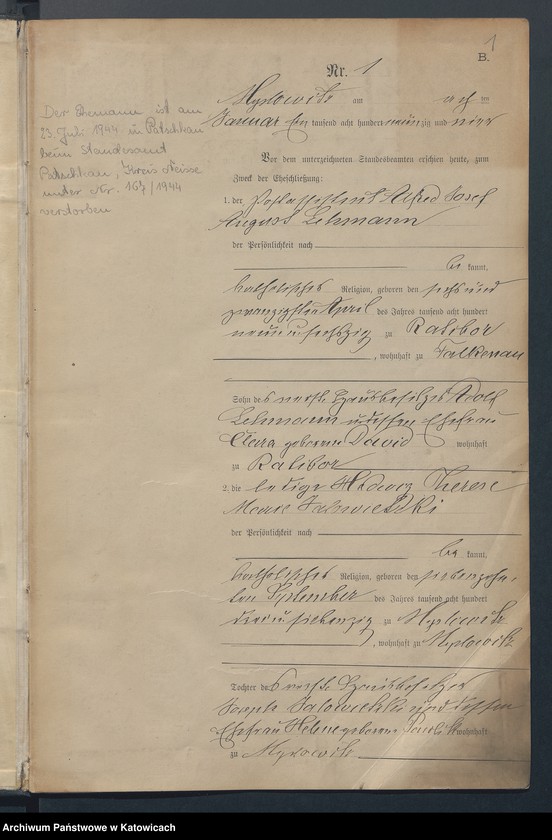 1
B.
Nr. 1
Der Ehemann ist am
23. Juli 1944 in Patschkau
beim Standesamt
Patschkau, Kreis Neisse
unter Nr. 167/1944
verstorben
Myslowitz am acht ten
Januar Ein tausend acht hundert neunzig und vier
Vor dem unterzeichneten Standesbeamten erschien heute, zum
Zweck der Eheschließung:
1. der Postassistent Alfred Josef
August Lehmann
der Persönlichkeit nach
be kannt,
katholischer Religion, geboren den sechs und
zwanzigsten April des Jahres tausend acht hundert
neun u sechszig zu Ratibor
, wohnhaft zu Falkenau
Sohn des verst. Hausbesitzers Adolf
Lehmann u dessen Ehefrau
Clara geborene David wohnhaft
zu Ratibor
2. die ledige Hedwig Therese
Marie
der Persönlichkeit nach
be kannt,
katholischer Religion, geboren den siebenzehn
ten September des Jahres tausend acht hundert
drei u siebenzig zu Myslowitz
, wohnhaft zu Myslowitz
Tochter des verst. Hausbesitzer
Joseph und dessen
Ehefrau Helene geborene wohnhaft
zu Myslowitz
Archiwum Państwowe w Katowicach